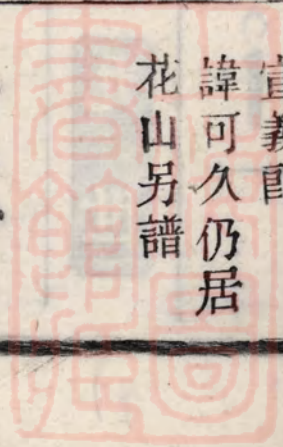 宣義郎
諱可久仍居
花山另譜